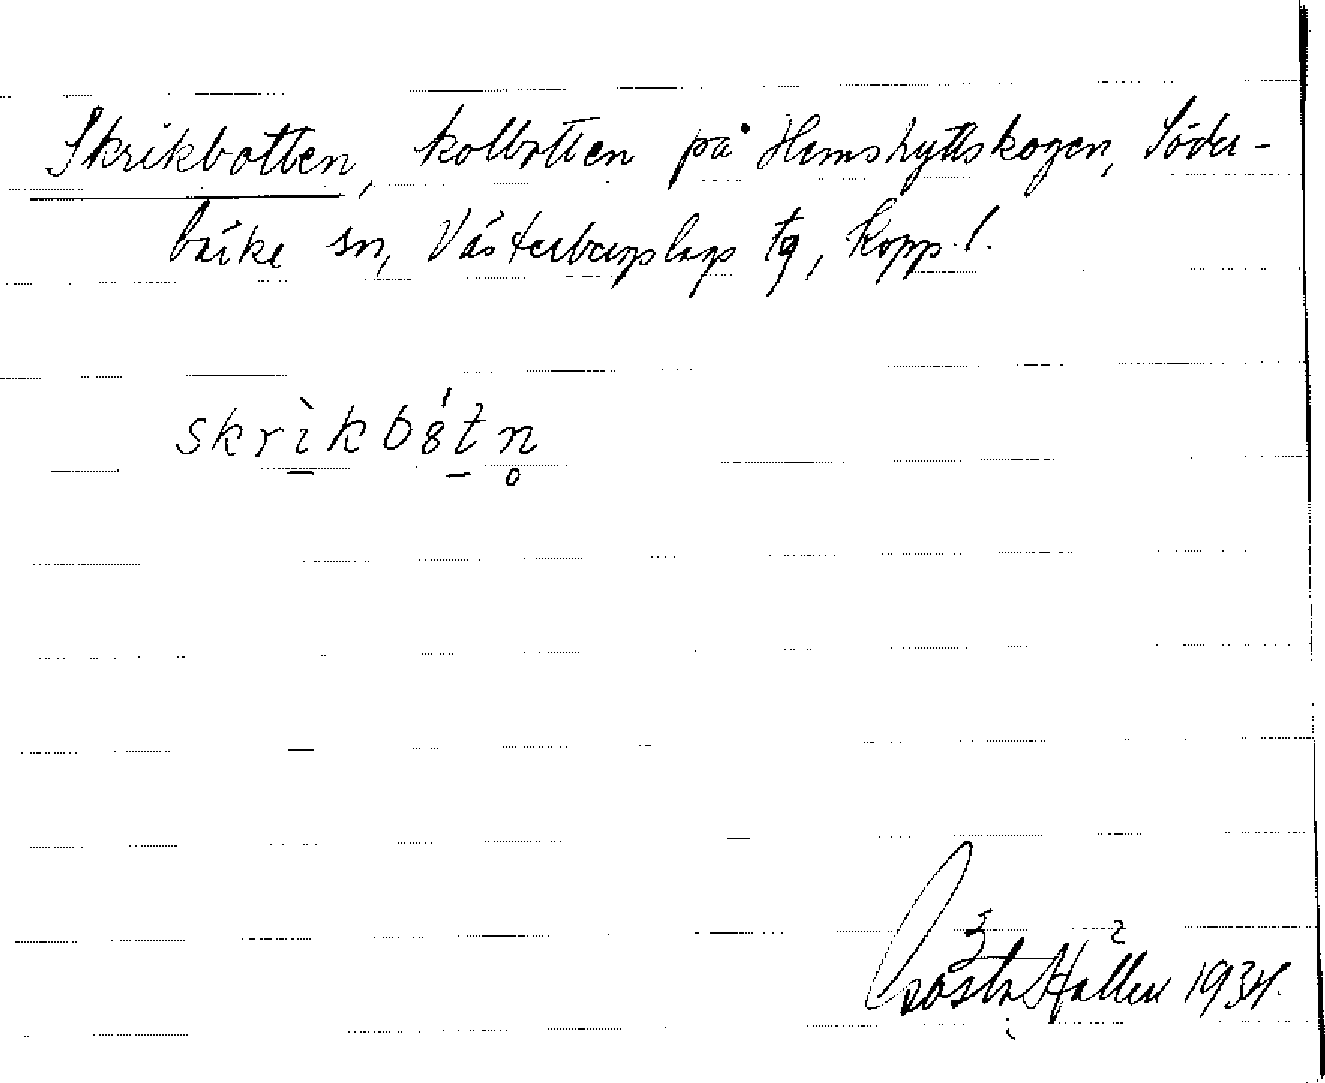 Skrikbotten, kolbotten på Hemshyttskogen, Söder-
bärke sn, Västerbergslags tg, Kopp. l.
skrìkbótn̥
Gösta Hallén 1934.